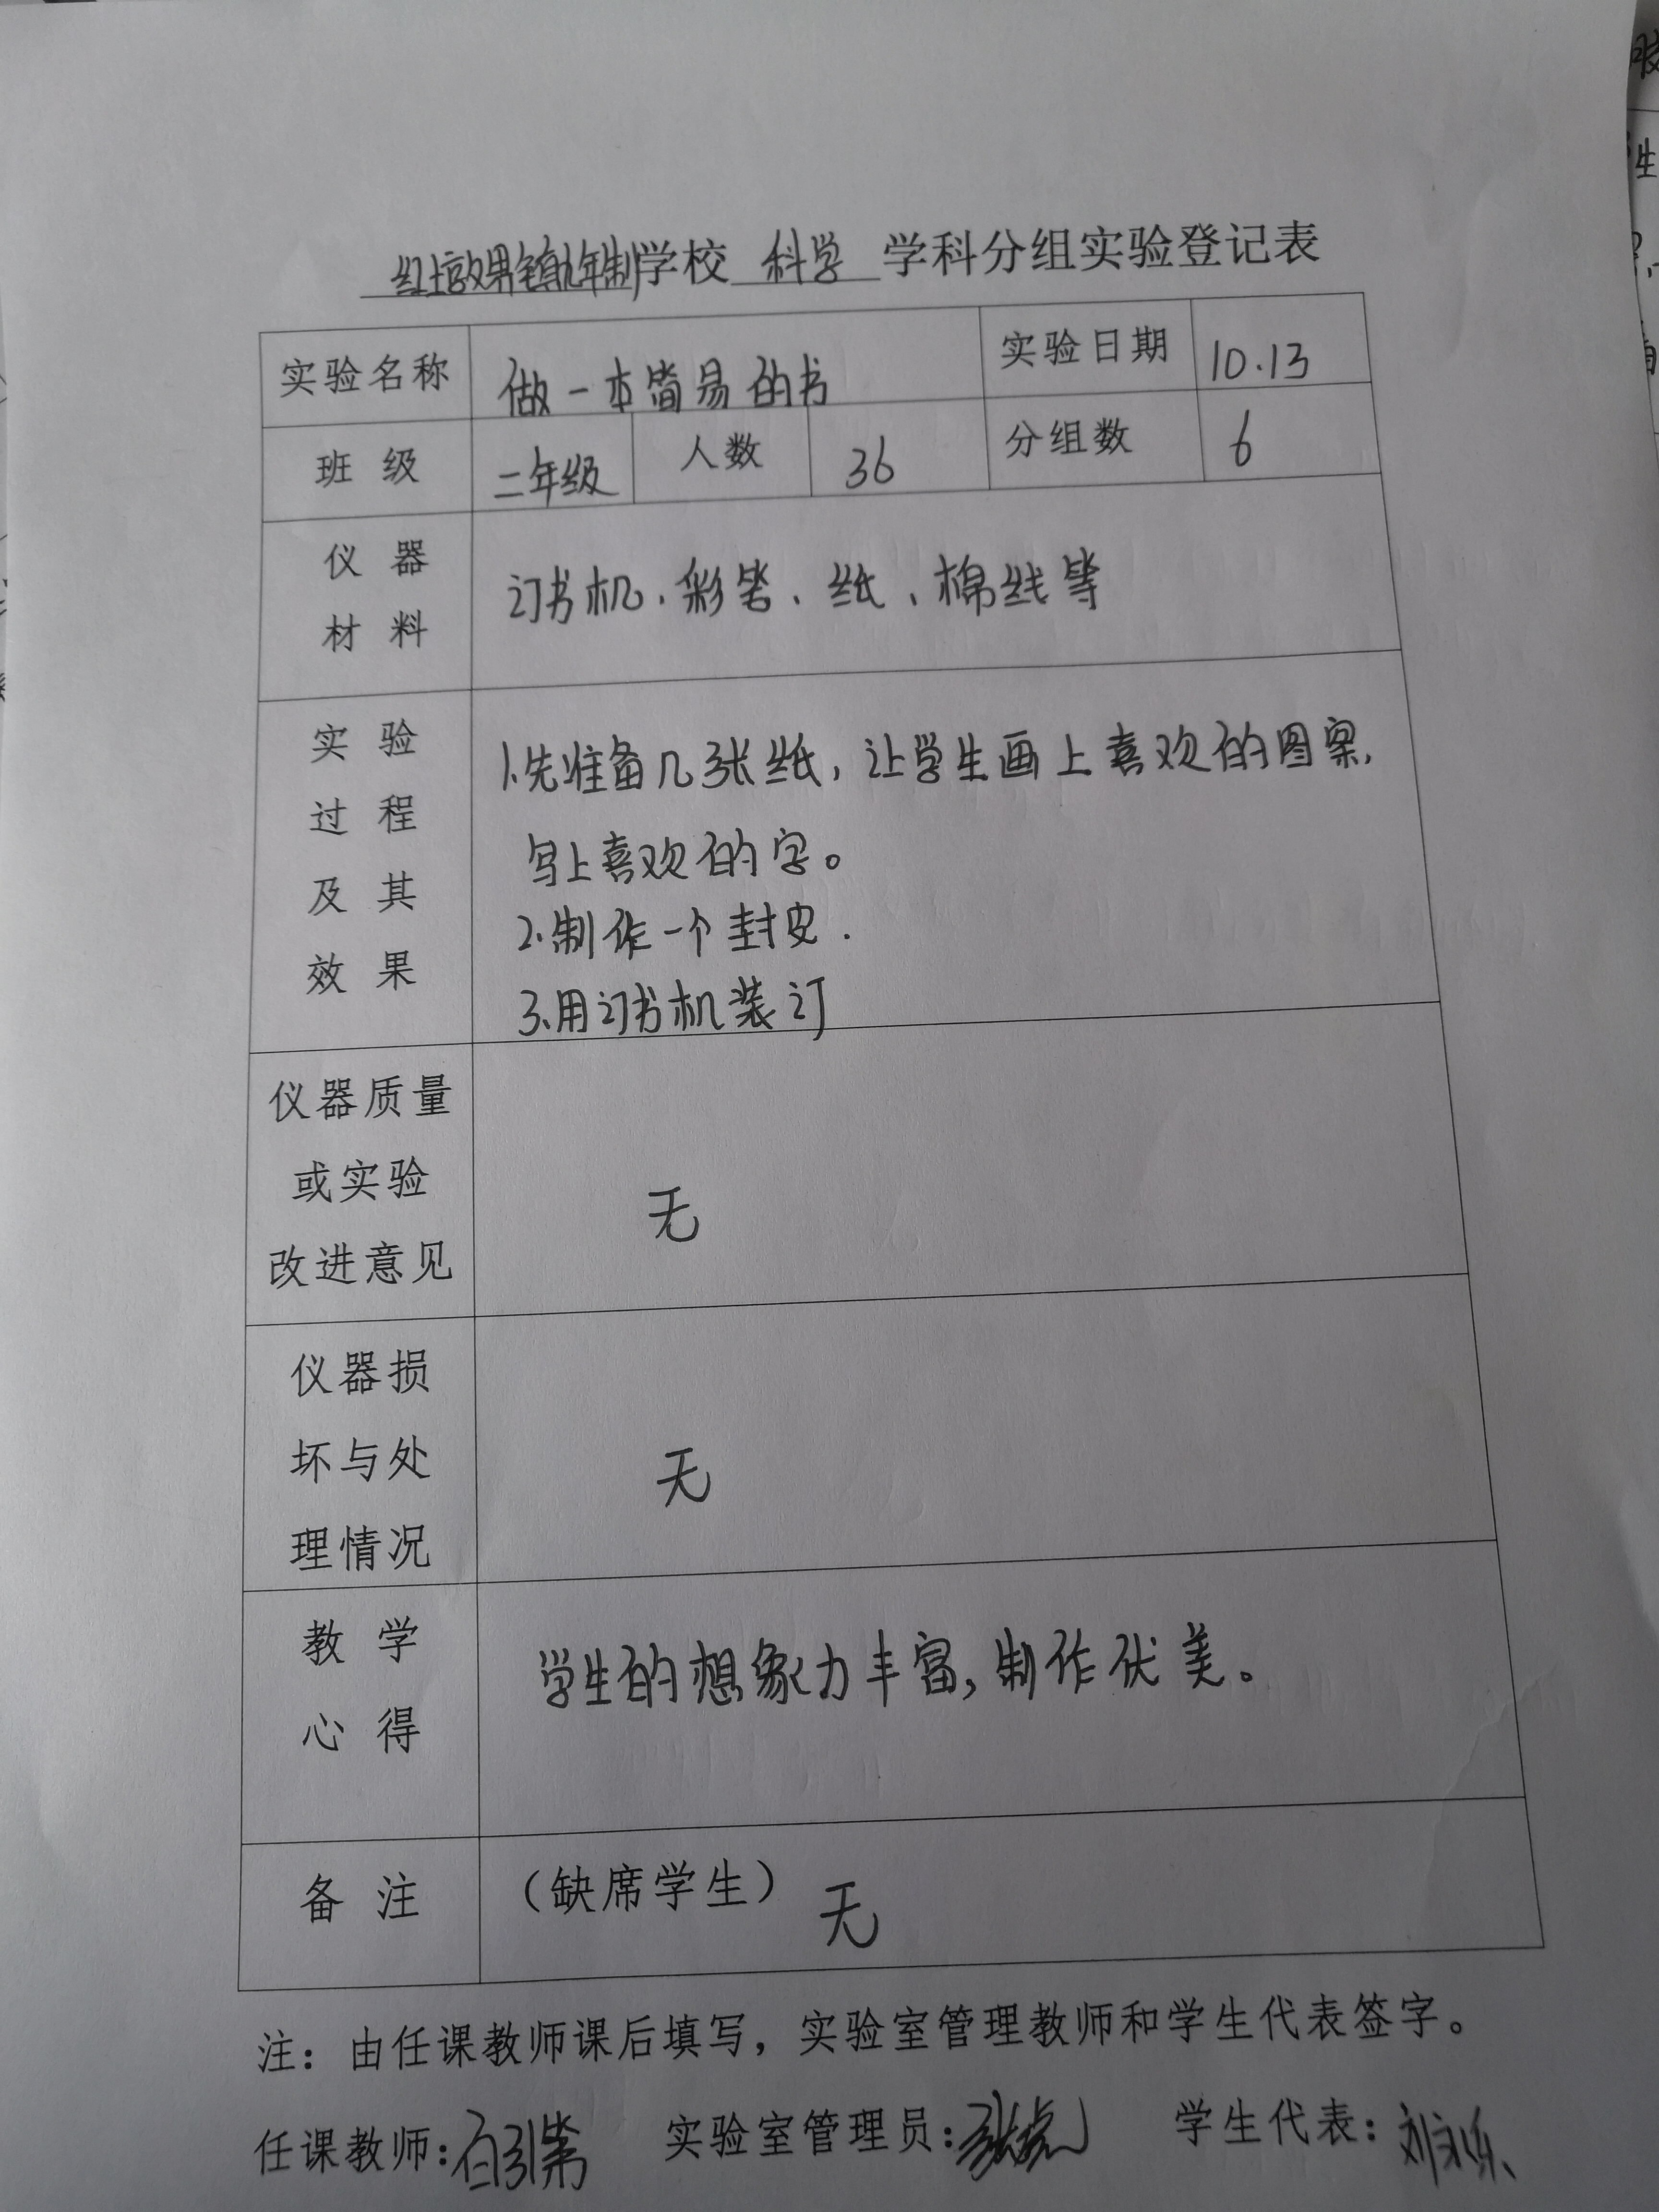 学校 科学 学科分组实验登记表
实验名称 做一本简易的书 实验日期 10.13
班 级 二年级 人数 36 分组数 6
仪 器
材 料
订书机、彩笔、纸、棉线等
实 验
过 程
及 其
效 果
1.先准备几张纸，让学生画上喜欢的图案，
写上喜欢的字。
2.制作一个封皮.
3.用订书机装订
仪器质量
或实验
改进意见
无
仪器损
坏与处
理情况
无
教 学
心 得
学生的想象力丰富，制作优美。
备 注 （缺席学生） 无
注：由任课教师课后填写，实验室管理教师和学生代表签字。
任课教师： 实验室管理员： 学生代表：